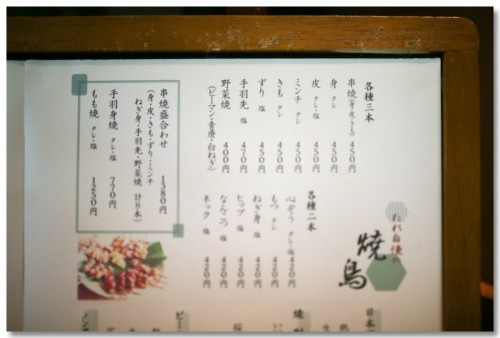 たれ自慢の
焼鳥
各種三本
串焼(身・皮・きも) 450円
身 タレ 450円
皮 タレ・塩 450円
ミンチ タレ 450円
きも タレ 450円
ずり 塩 450円
手羽先 塩 470円
野菜焼 400円
(ピーマン・青唐・白ねぎ)
串焼盛合わせ 1380円
(身・皮・きも・ずり・ミンチ
ねぎ身・手羽先・野菜焼 計8本)
手羽身焼 タレ・塩 770円
もも焼 タレ・塩 1250円
各種二本
心ぞう タレ・塩 420円
もつ タレ 420円
ねぎ身 塩 420円
ヒップ 塩 420円
なんこつ 塩 420円
ネック 塩 420円
日本
ビー
ノン